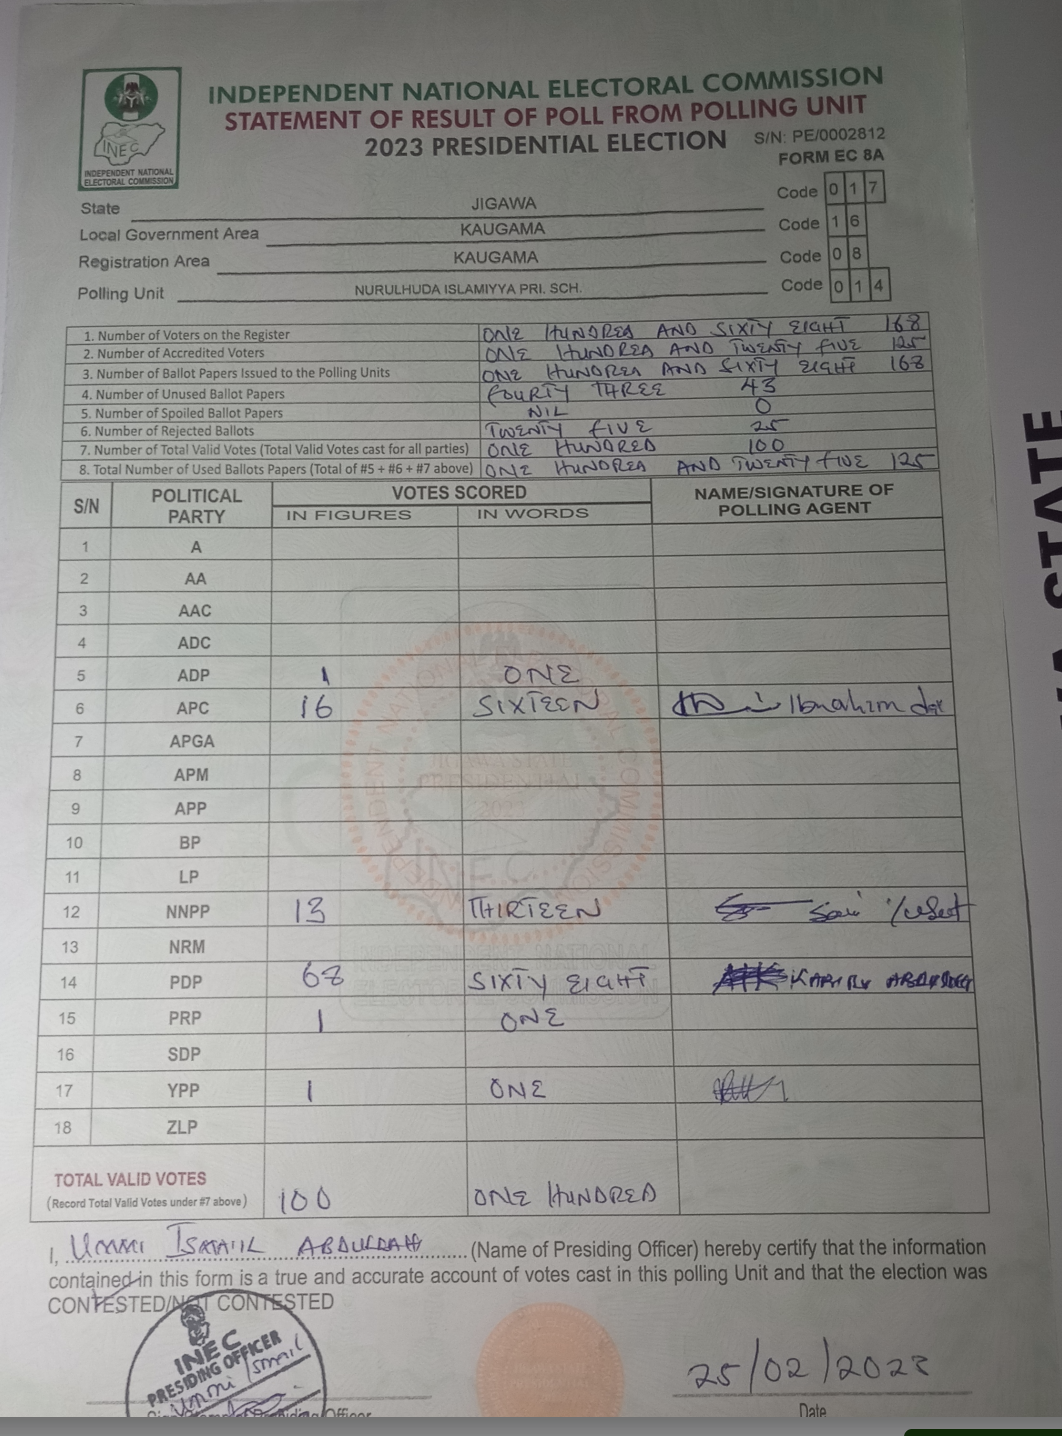 INDEPENDENT NATIONAL ELECTORAL COMMISSION
STATEMENT OF RESULT OF POLL FROM POLLING UNIT
2023 PRESIDENTIAL ELECTION S/N: PE/0002812
FORM EC 8A
INEC
INDEPENDENT NATIONAL
ELECTORAL COMMISSION
State JIGAWA Code 017
Local Government Area KAUGAMA Code 16
Registration Area KAUGAMA Code 08
Polling Unit NURULHUDA ISLAMIYYA PRI. SCH. Code 014
1. Number of Voters on the Register ONE HUNDRED AND SIXTY EIGHT 168
2. Number of Accredited Voters ONE HUNDRED AND TWENTY FIVE 125
3. Number of Ballot Papers Issued to the Polling Units ONE HUNDRED AND SIXTY EIGHT 168
4. Number of Unused Ballot Papers FOURTY THREE 43
5. Number of Spoiled Ballot Papers NIL 0
6. Number of Rejected Ballots TWENTY FIVE 25
7. Number of Total Valid Votes (Total Valid Votes cast for all parties) ONE HUNDRED 100
8. Total Number of Used Ballots Papers (Total of #5 + #6 + #7 above) ONE HUNDRED AND TWENTY FIVE 125
S/N POLITICAL PARTY VOTES SCORED NAME/SIGNATURE OF POLLING AGENT
IN FIGURES IN WORDS
1 A
2 AA
3 AAC
4 ADC
5 ADP 1 ONE
6 APC 16 SIXTEEN Ibrahim
7 APGA
8 APM
9 APP
10 BP
11 LP
12 NNPP 13 THIRTEEN
13 NRM
14 PDP 68 SIXTY EIGHT KABIRU
15 PRP 1 ONE
16 SDP
17 YPP 1 ONE
18 ZLP
TOTAL VALID VOTES
(Record Total Valid Votes under #7 above) 100 ONE HUNDRED
I, UMMI ISMAIL ABDULLAHI (Name of Presiding Officer) hereby certify that the information
contained in this form is a true and accurate account of votes cast in this polling Unit and that the election was
CONTESTED/NOT CONTESTED
INEC
PRESIDING OFFICER
Ummi Ismail
25/02/2023
Date
STATE